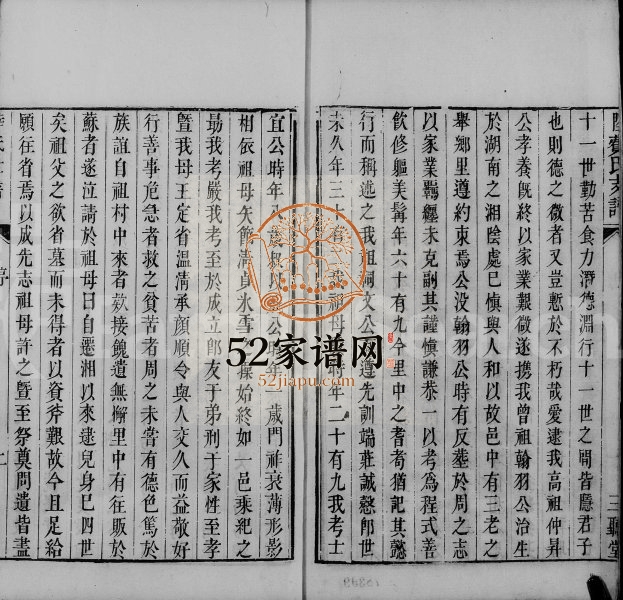 十一世勤苦食力潛德淵行十一世之間皆隱君子
也則德之微者又豈慙於不朽哉爰逮我高祖仲昇
公孝養旣終以家業艱微遂携我曾祖翰羽公治生
於湖南之湘陰處已慎與人和以故邑中有三老之
舉鄉里遵約束焉公没翰羽公時有反塟於周之志
以家業羈纏未克副其謹慎謙恭一以考爲程式善
飲修軀美髯年六十有九今里中之耆耇猶記其懿
行而稱述之我祖 文公 遵先訓端莊誠慤卽世
未久年三十 祖母 時年二十有九我考士
宜公時年 歲叔 公時年 歲門祚衰薄形影
相依祖母矢節清貞氷雪 操始終如一邑乘紀之
最我考嚴我考至於成立郎友于弟刑于家性至孝
曁我母王定省溫凊承顏順令與人交久而益敬好
行善事危急者救之貧苦者周之未甞有德色篤於
族誼自祖村中來者欵接餽遺無懈里中有往販於
蘇者遂泣請於祖母曰自遷湘以來逮兒身已四世
矣祖父之欲省墓而未得者以資斧艱故今且足給
願往省焉以成先志祖母許之曁至祭奠問遺皆盡
三 堂
52家谱网
52jiapu.com